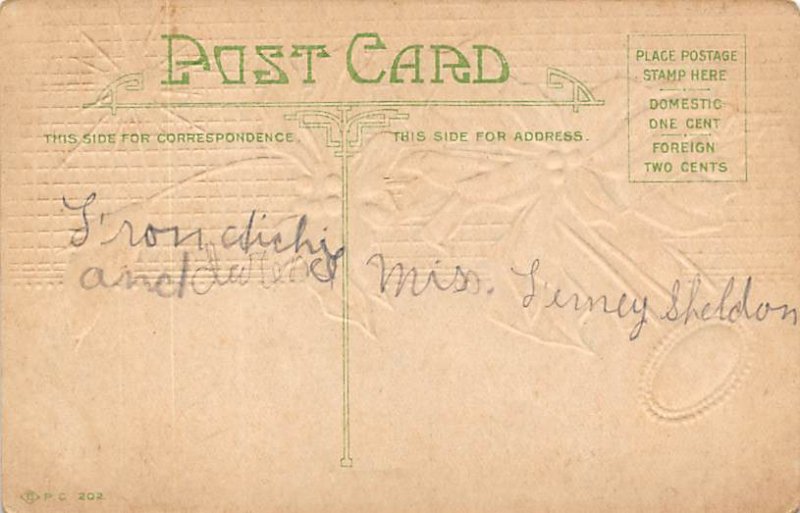 POST CARD
PLACE POSTAGE
STAMP HERE
DOMESTIC
ONE CENT
FOREIGN
TWO CENTS
THIS SIDE FOR CORRESPONDENCE.
THIS SIDE FOR ADDRESS.
From
and
Miss. Ferney Sheldon
P.C. 202.